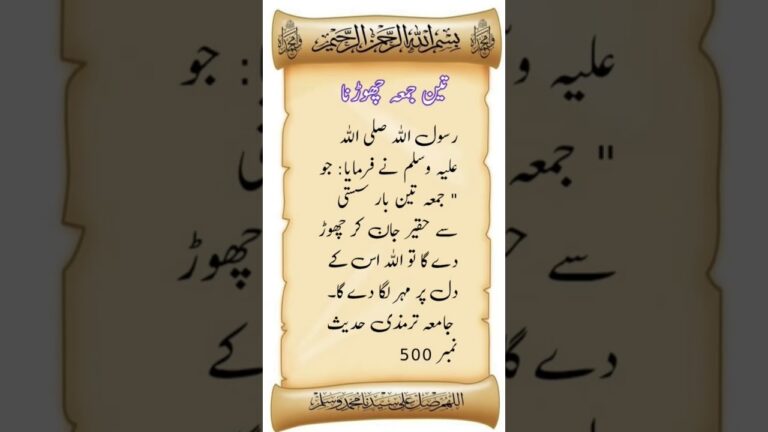 بسم اللہ الرحمن الرحیم
تین جمعہ چھوڑنا
رسول اللہ صلی اللہ
علیہ وسلم نے فرمایا: جو
" جمعہ تین بار سستی
سے حقیر جان کر چھوڑ
دے گا تو اللہ اس کے
دل پر مہر لگا دے گا۔
جامعہ ترمذی حدیث
نمبر 500
اللهم صل علی سیدنا محمد وسلم